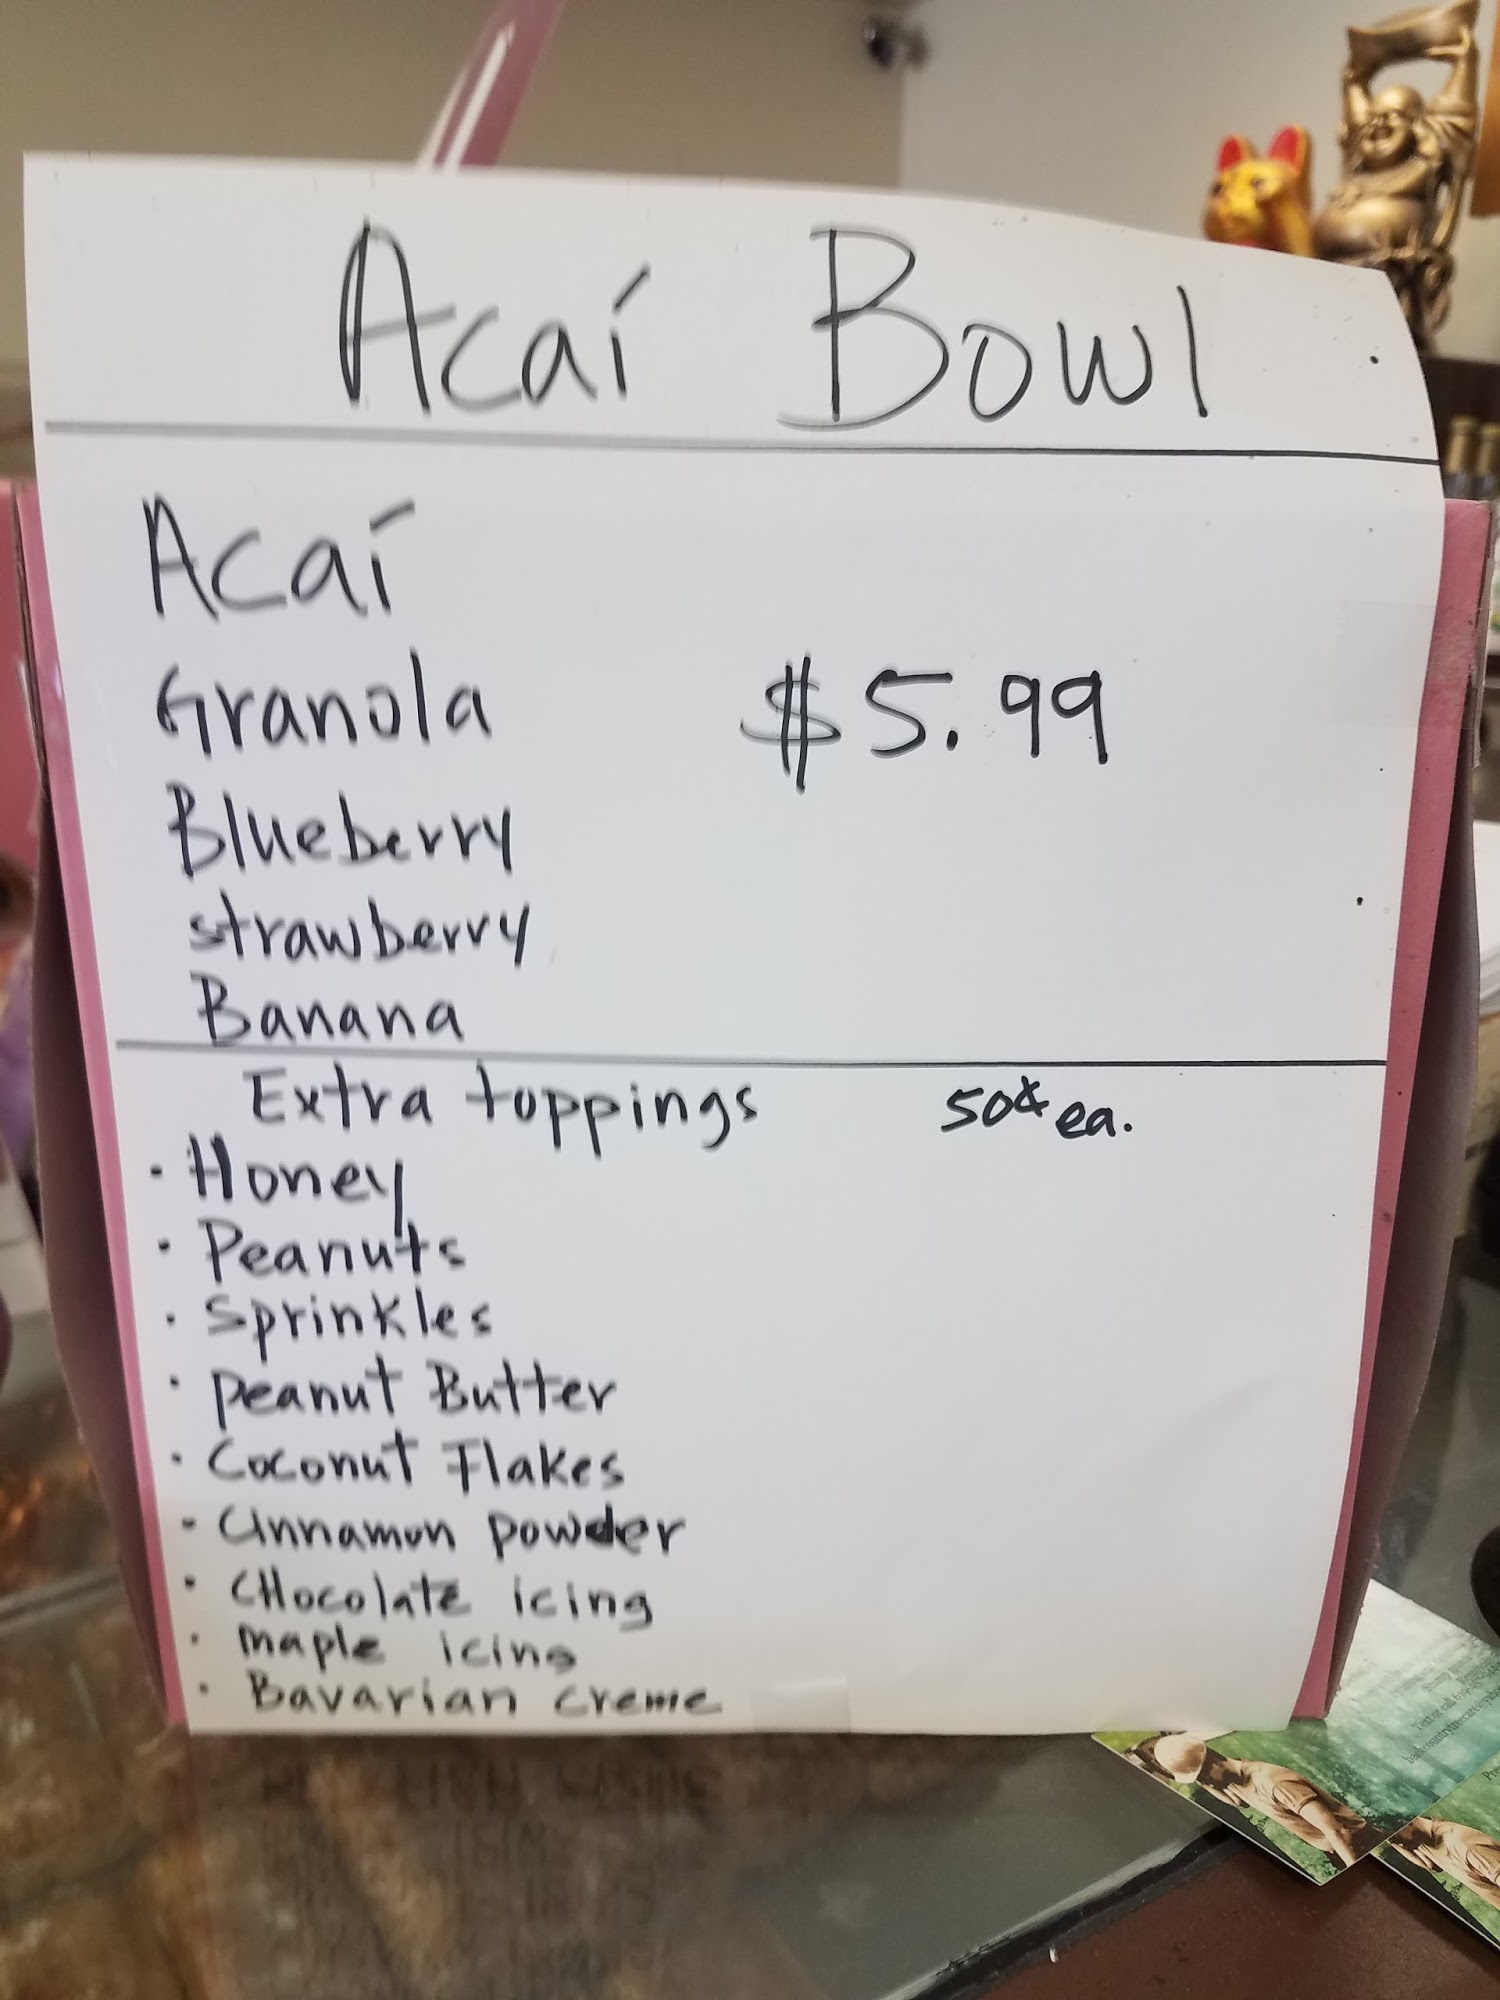 Acaí Bowl
Acaí
Granola
$5.99
Blueberry
strawberry
Banana
Extra toppings 50¢ ea.
· Honey
· Peanuts
· Sprinkles
· Peanut Butter
· Coconut Flakes
· Cinnamon powder
· CHocolate icing
· maple icing
· Bavarian creme
Text or call